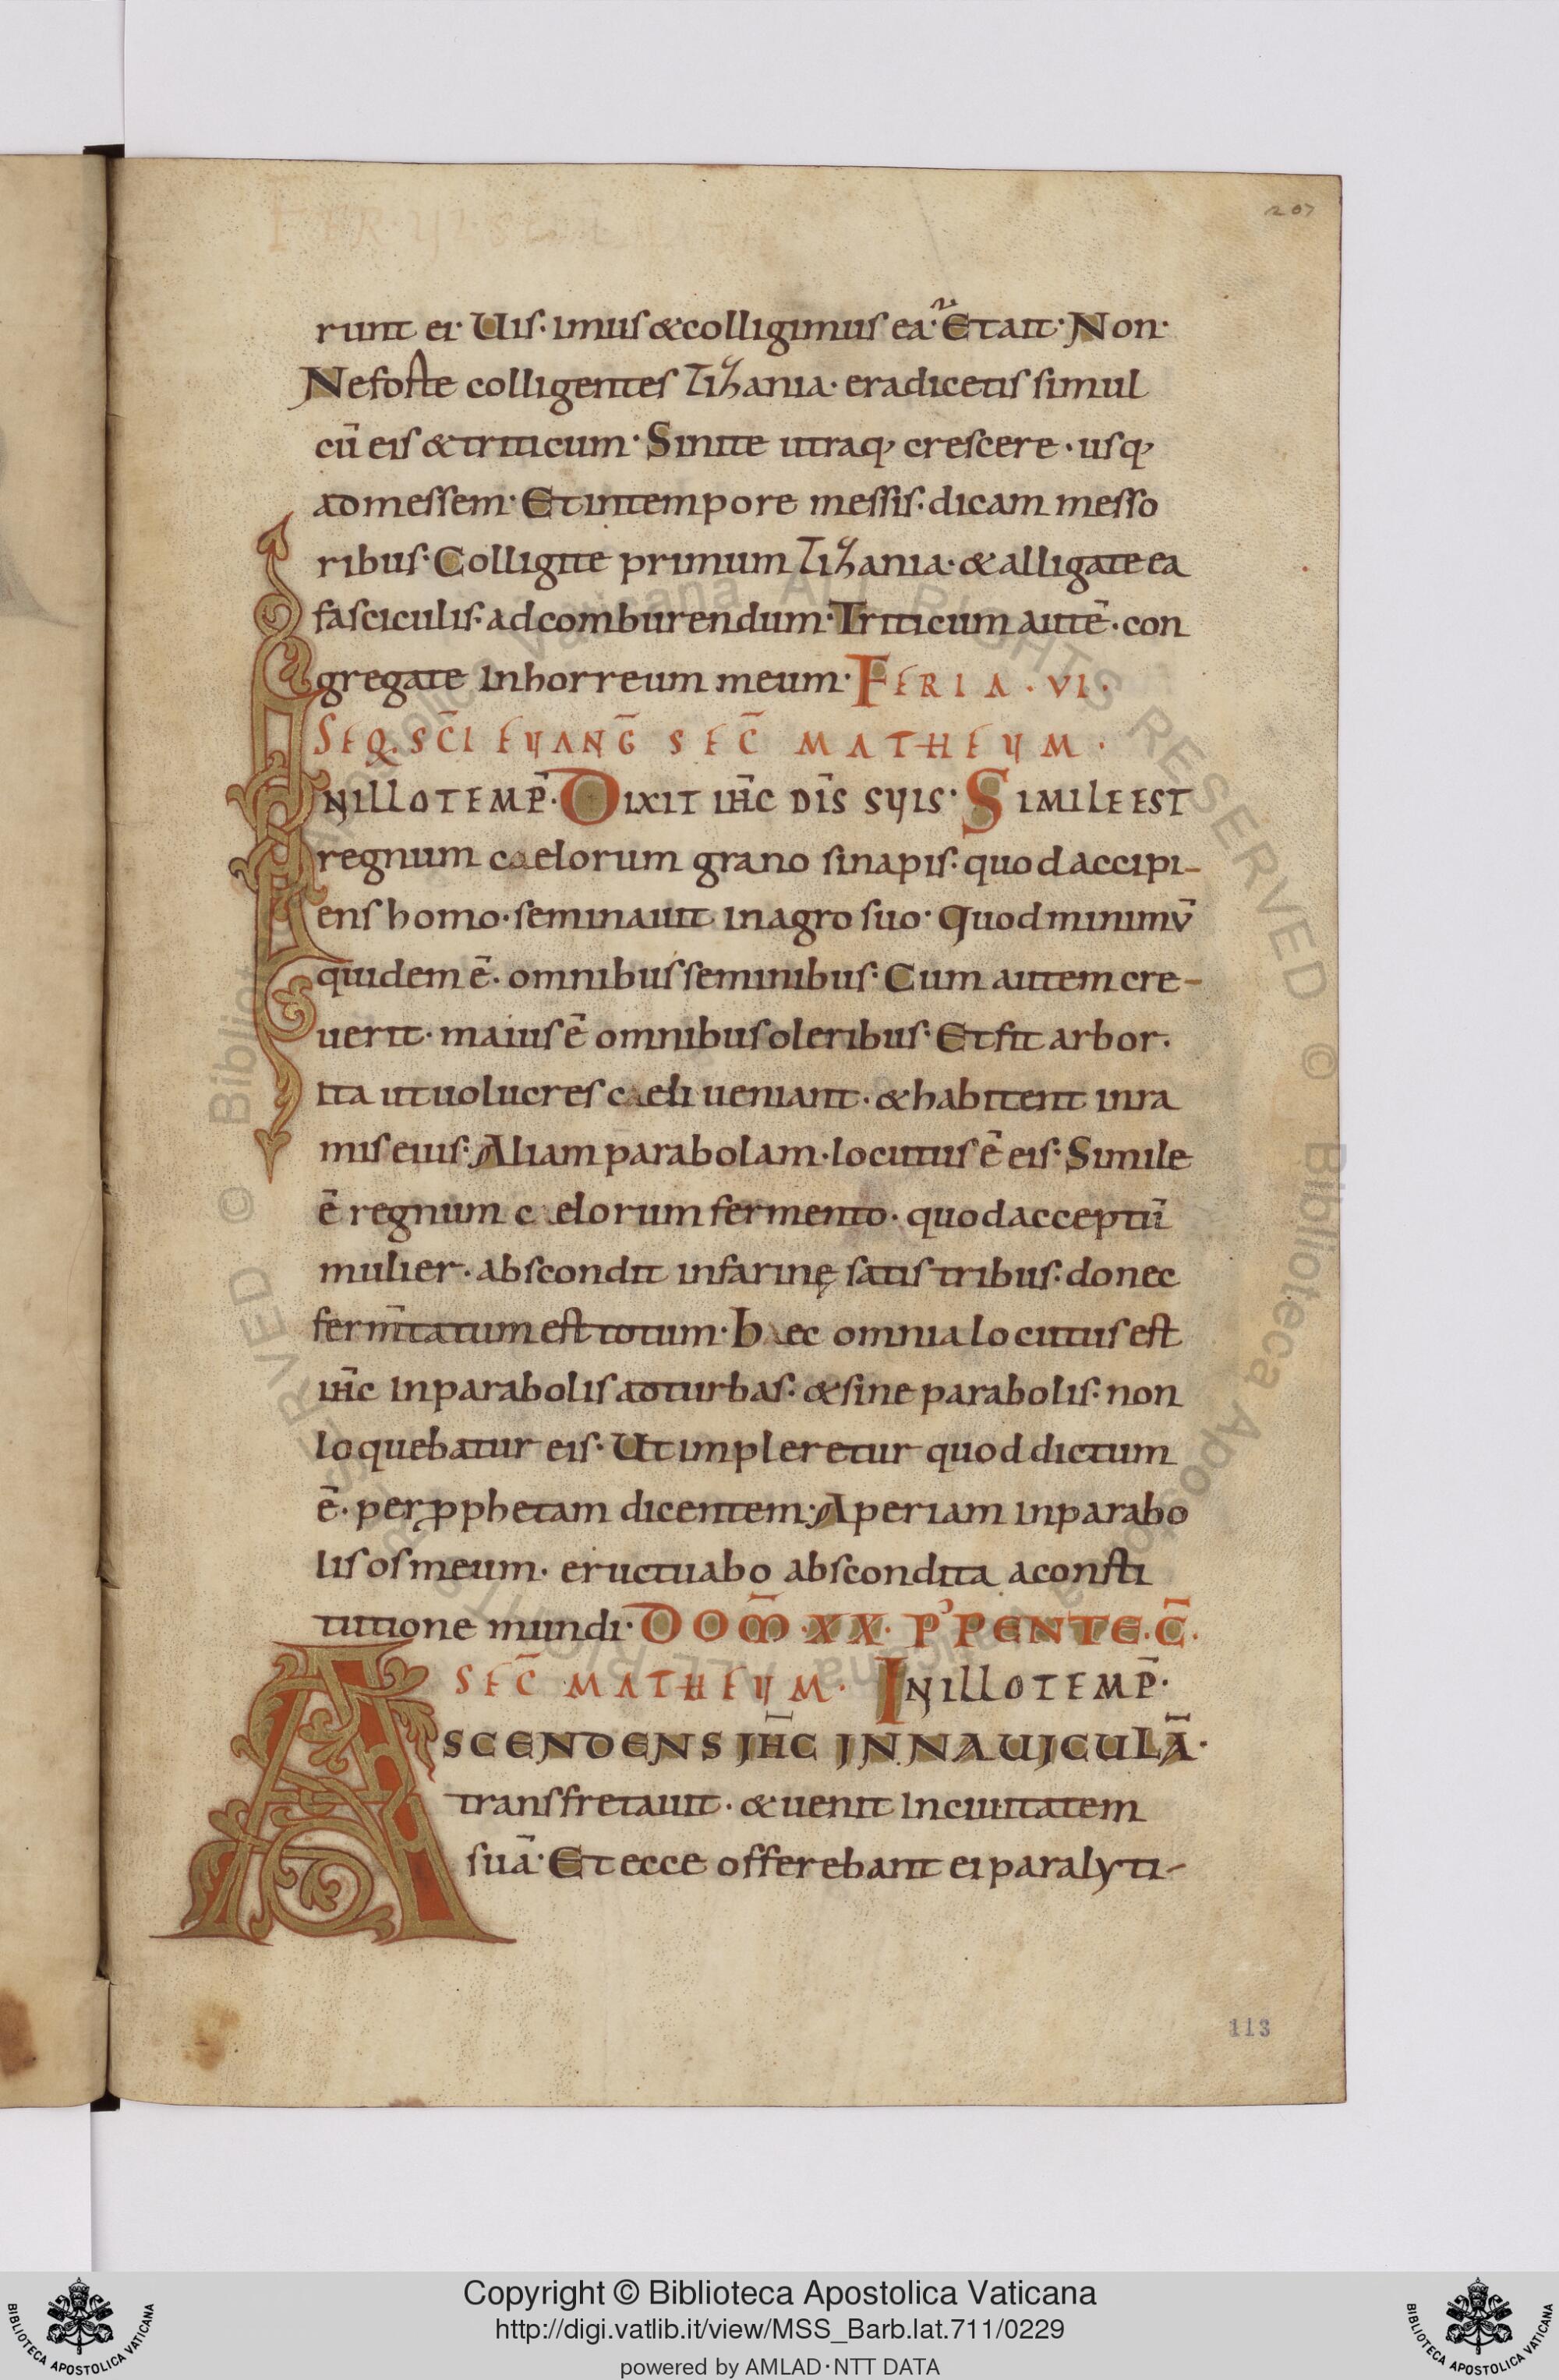 207
runt ei· Uis· imus & colligimus ea· Et ait· Non·
Ne forte colligentes zizania· eradicetis simul
cū eis & triticum· Sinite utraq; crescere· usq;
ad messem· Et in tempore messis· dicam messo
ribus· Colligite primum zizania· & alligate ea
fasciculis· ad comburendum· Triticum autē· con
gregate in horreum meum· FERIA · VI ·
SEQ· SC̄I EVANḠ SEC̄ MATHEVM ·
IN ILLO TEMP̄· DIXIT IH̄C DĪS SVIS· SIMILE EST
regnum caelorum grano sinapis· quod accipi-
ens homo· seminauit in agro suo· Quod minimū
quidem ē· omnibus seminibus· Cum autem cre-
uerit· maius ē omnibus oleribus· Et fit arbor·
Ita ut uolucres caeli ueniant· & habitent in ra
mis eius· Aliam parabolam· locutus ē eis· Simile
ē regnum caelorum fermento· quod acceptū
mulier· abscondit in farinę satis tribus· donec
ferm̄tatum est totum· Haec omnia locutus est
ih̄c in parabolis ad turbas· & sine parabolis· non
loquebatur eis· Ut impleretur quod dictum
ē· per ꝓphetam dicentem· Aperiam in parabo
lis os meum· eructuabo abscondita a consti
tutione mundi· DOM̄· XX· P' PENTE·C̄·
SEC̄ MATHEVM· IN ILLO TEMP̄·
ASCENDENS IH̄C IN NAUICULĀ·
transfretauit· & uenit in ciuitatem
suā· Et ecce offerebant ei paralyti-
113
Copyright © Biblioteca Apostolica Vaticana
http://digi.vatlib.it/view/MSS_Barb.lat.711/0229
powered by AMLAD·NTT DATA
BIBLIOTECA APOSTOLICA VATICANA
BIBLIOTECA APOSTOLICA VATICANA